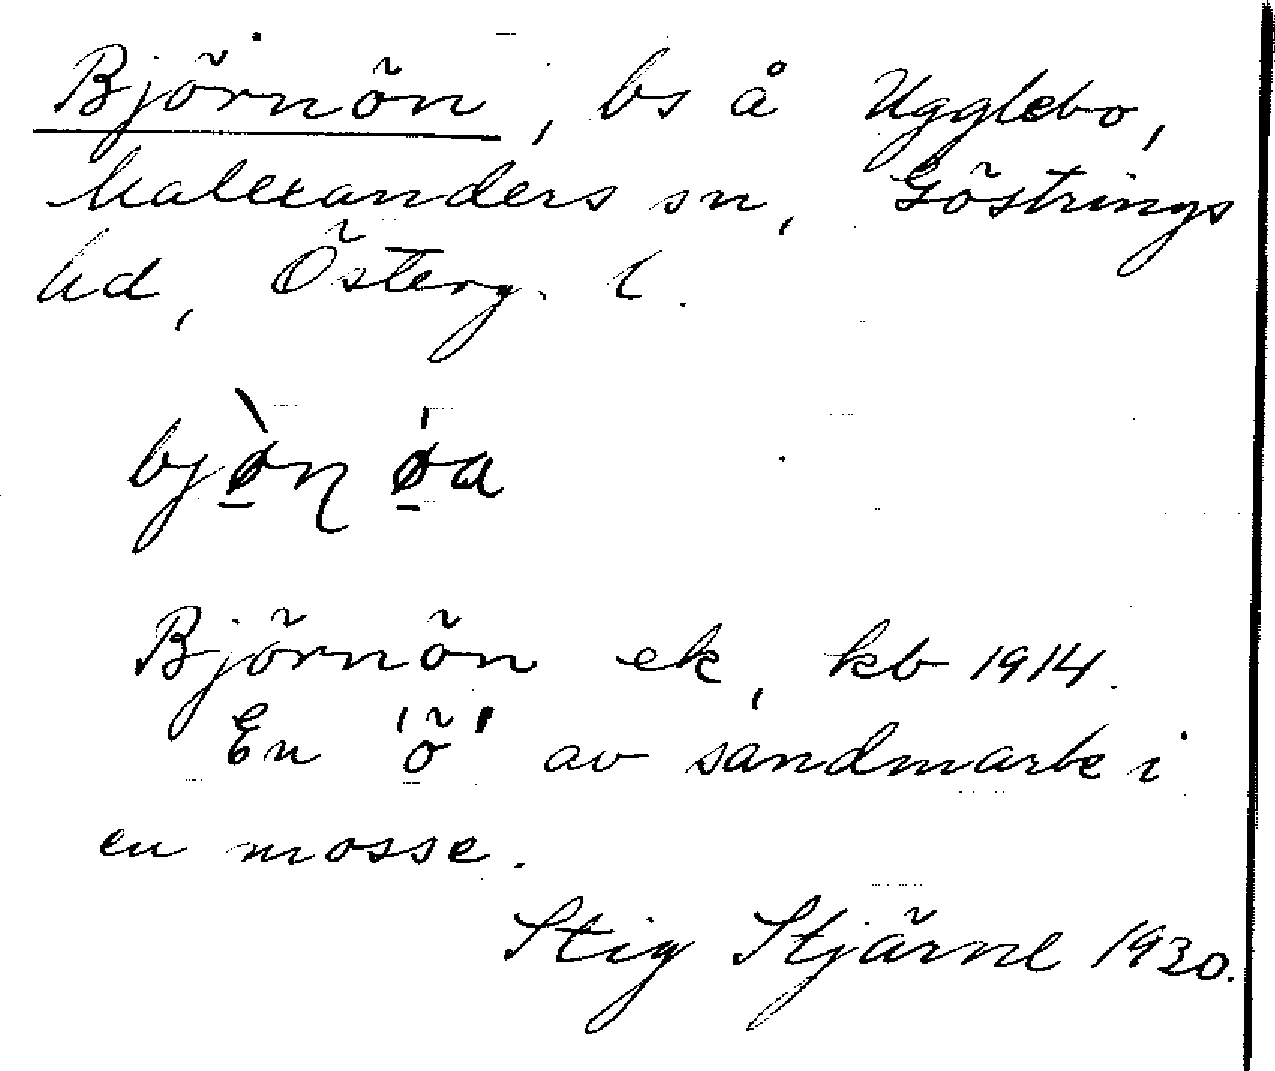 Björnön, bs å Ugglebo,
Malexanders sn, Göstrings
hd, Österg. l.
bjø̠̀ɳ ǿ̠a
Björnön ek, kb 1914.
En 'ö' av sandmark i
en mosse.
Stig Stjärne 1930.